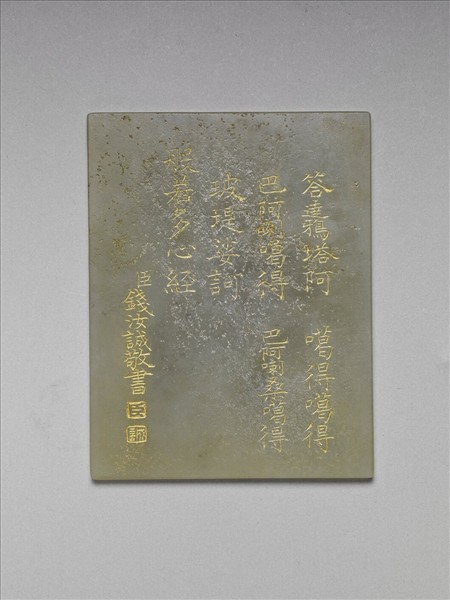 答達鴉塔阿 噶得噶得
巴阿喇噶得 巴阿喇桑噶得
玻堤娑訶
般若多心經
臣錢汝誠敬書
臣